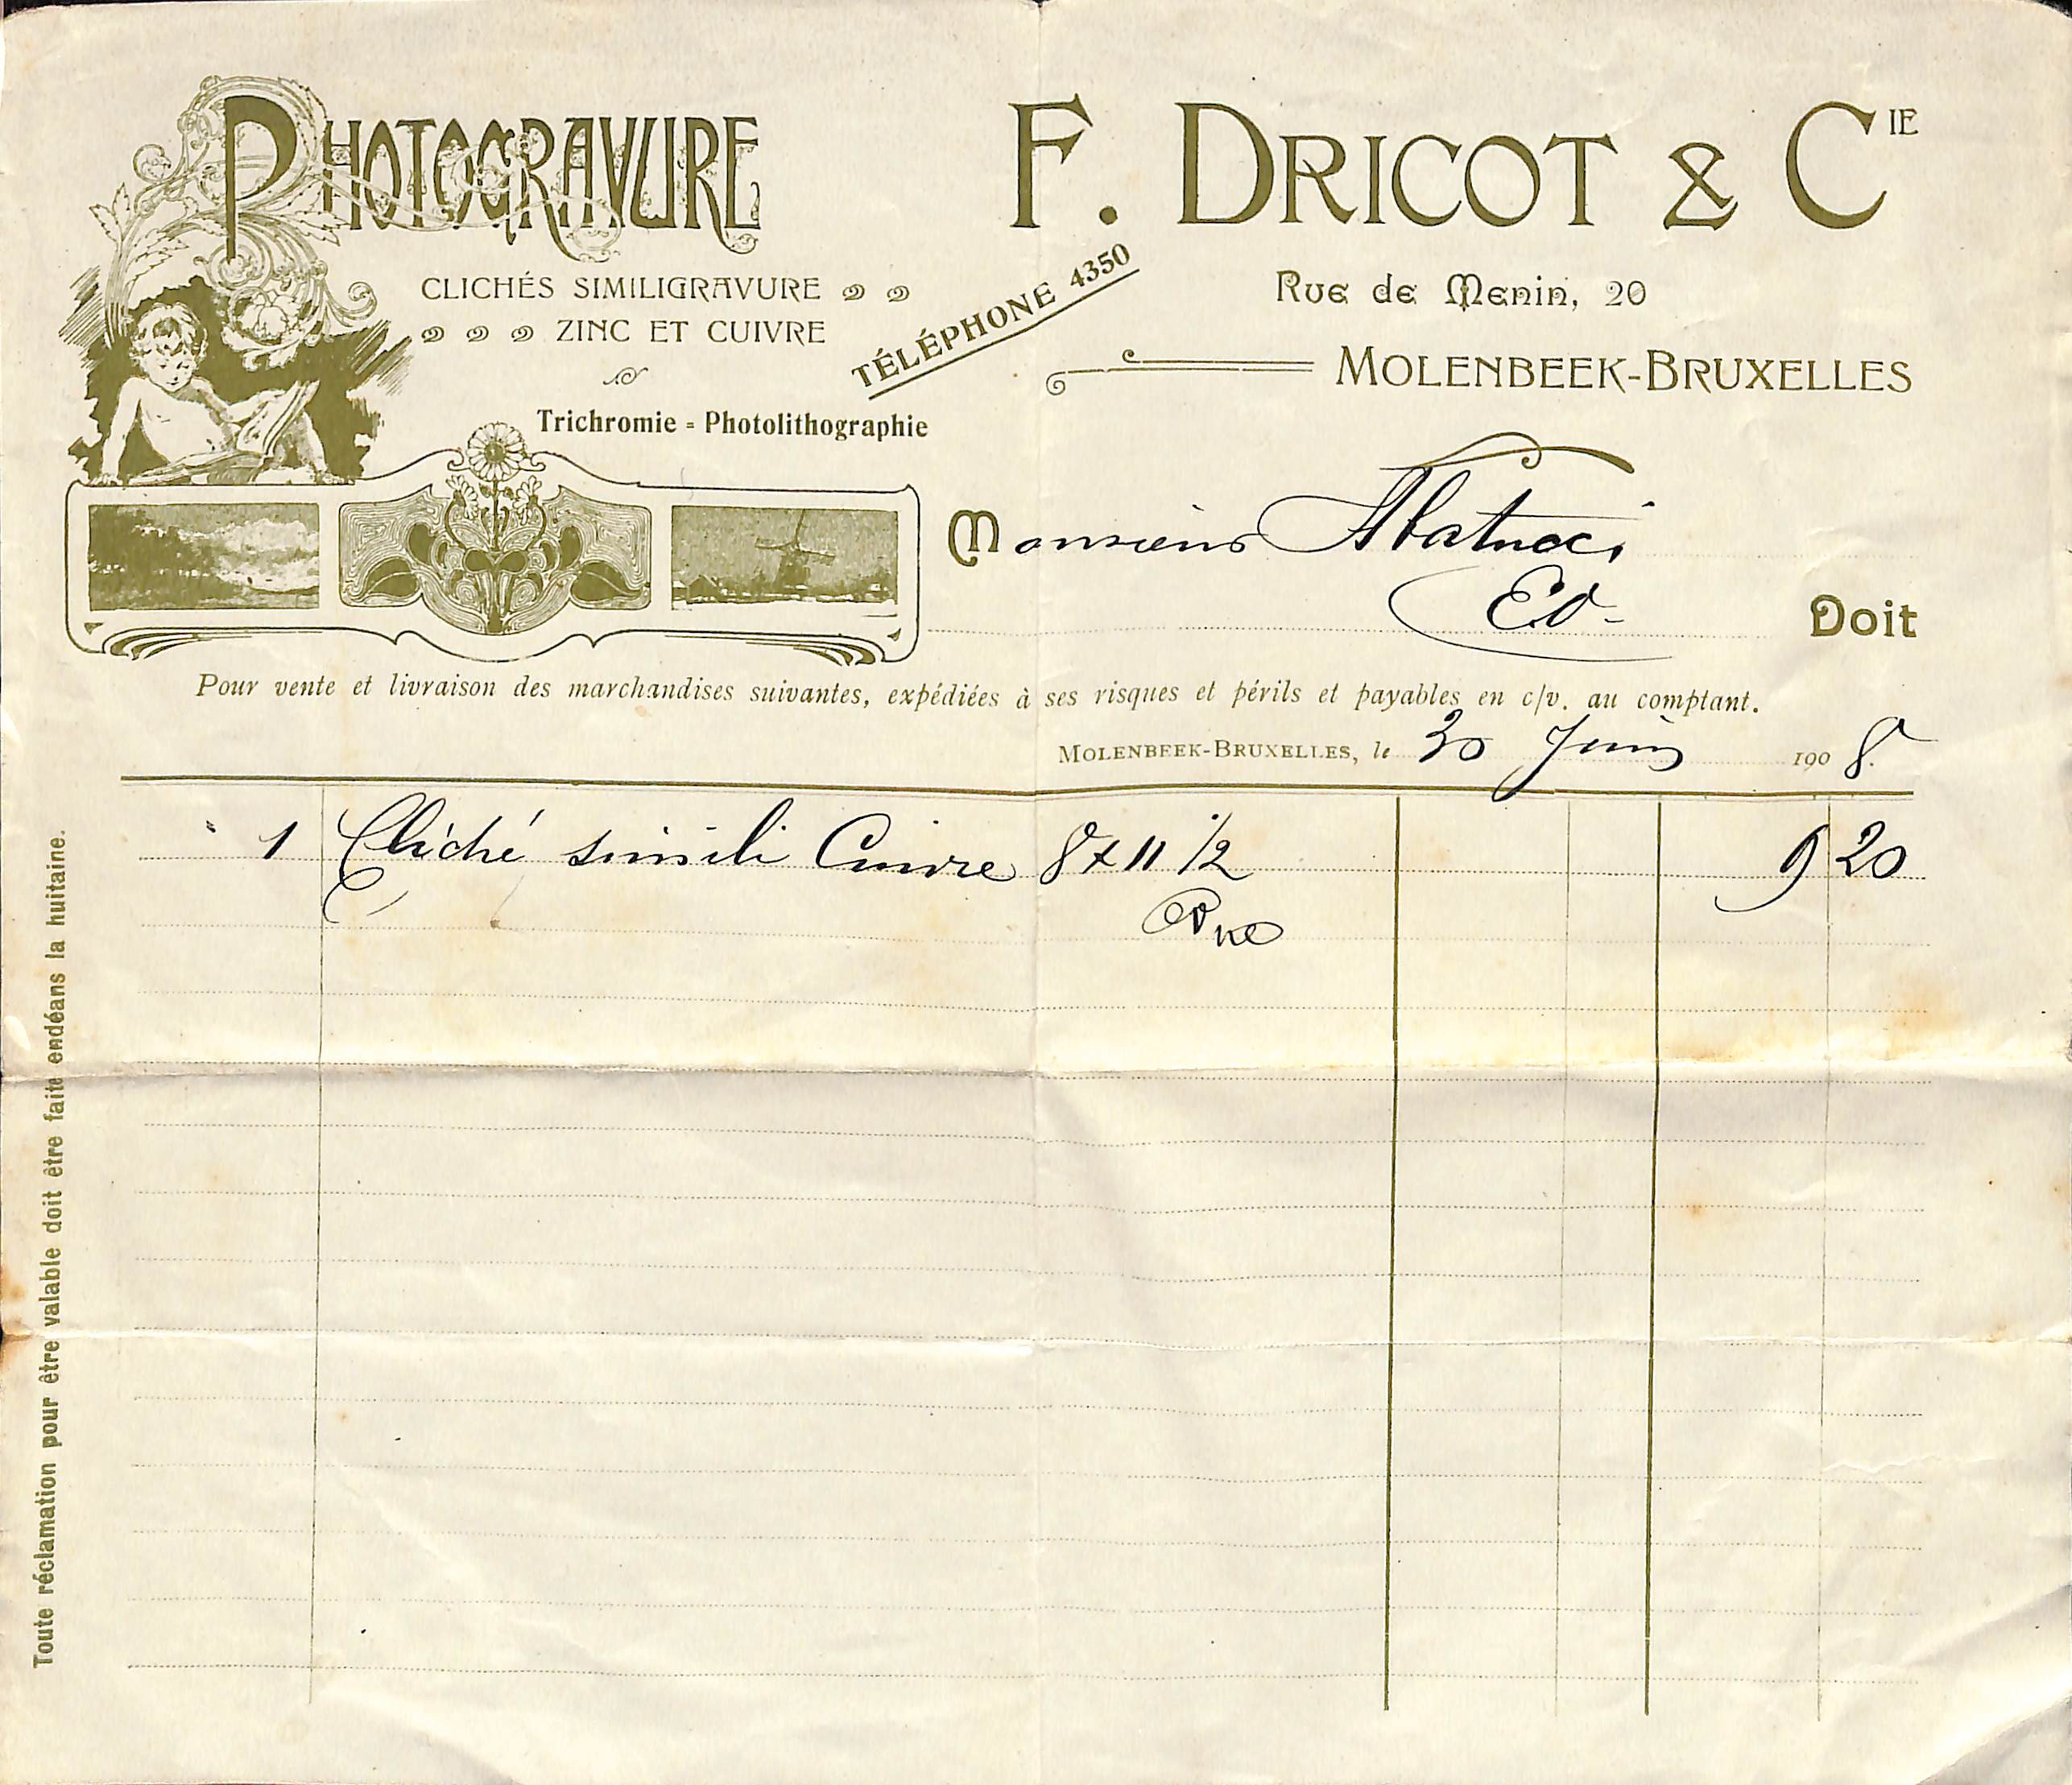 PHOTOGRAVURE
CLICHÉS SIMILIGRAVURE
ZINC ET CUIVRE
Trichromie = Photolithographie
TÉLÉPHONE 4350
F. DRICOT & CIE
Rue de Menin, 20
MOLENBEEK-BRUXELLES
Monsieur
Ed- Doit
Pour vente et livraison des marchandises suivantes, expédiées à ses risques et périls et payables en c/v. au comptant.
MOLENBEEK-BRUXELLES, le 30 Juin 1908.
1 Cliché simili Cuivre 8 x 11 1/2 9 20
Toute réclamation pour être valable doit être faite endéans la huitaine.